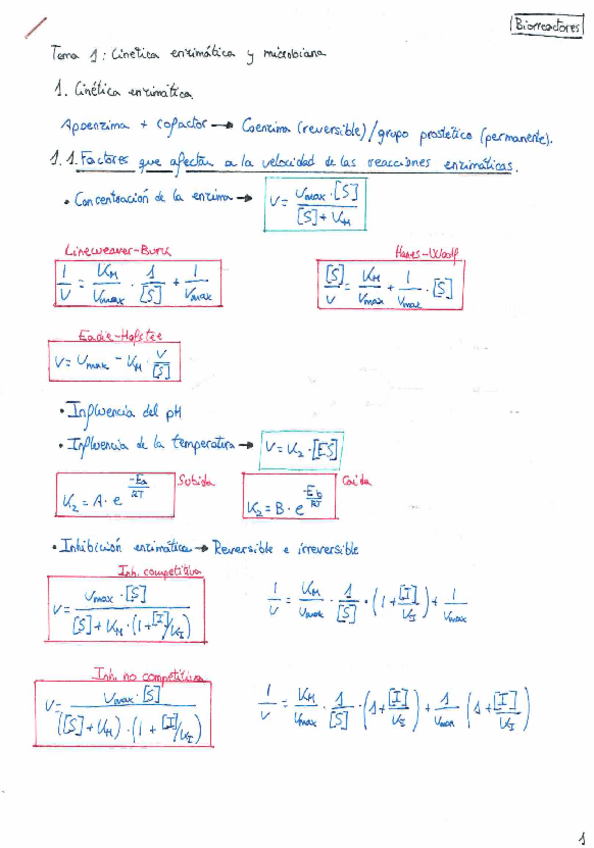 Biorreactores
Tema 1: Cinética enzimática y microbiana
1. Cinética enzimática.
Apoenzima + cofactor → Coenzima (reversible)/grupo prostético (permanente).
1.1. Factores que afectan a la velocidad de las reacciones enzimáticas.
• Concentración de la enzima → V = Vmax · [S] / ([S] + KM)
Lineweaver-Burk Hanes-Woolf
1/V = KM/Vmax · 1/[S] + 1/Vmax [S]/V = KM/Vmax + 1/Vmax · [S]
Eadie-Hofstee
V = Vmax - KM · V/[S]
• Influencia del pH
• Influencia de la temperatura → V = K2 · [ES]
K2 = A · e^(-Ea/RT) Subida K2 = B · e^(-Eb/RT) Caida
• Inhibición enzimática → Reversible e irreversible
Inh. competitiva
V = Vmax · [S] / ([S] + KM · (1 + [I]/KI)) 1/V = KM/Vmax · 1/[S] · (1 + [I]/KI) + 1/Vmax
Inh. no competitiva
V = Vmax · [S] / (([S] + KM) · (1 + [I]/KI)) 1/V = KM/Vmax · 1/[S] · (1 + [I]/KI) + 1/Vmax (1 + [I]/KI)
1